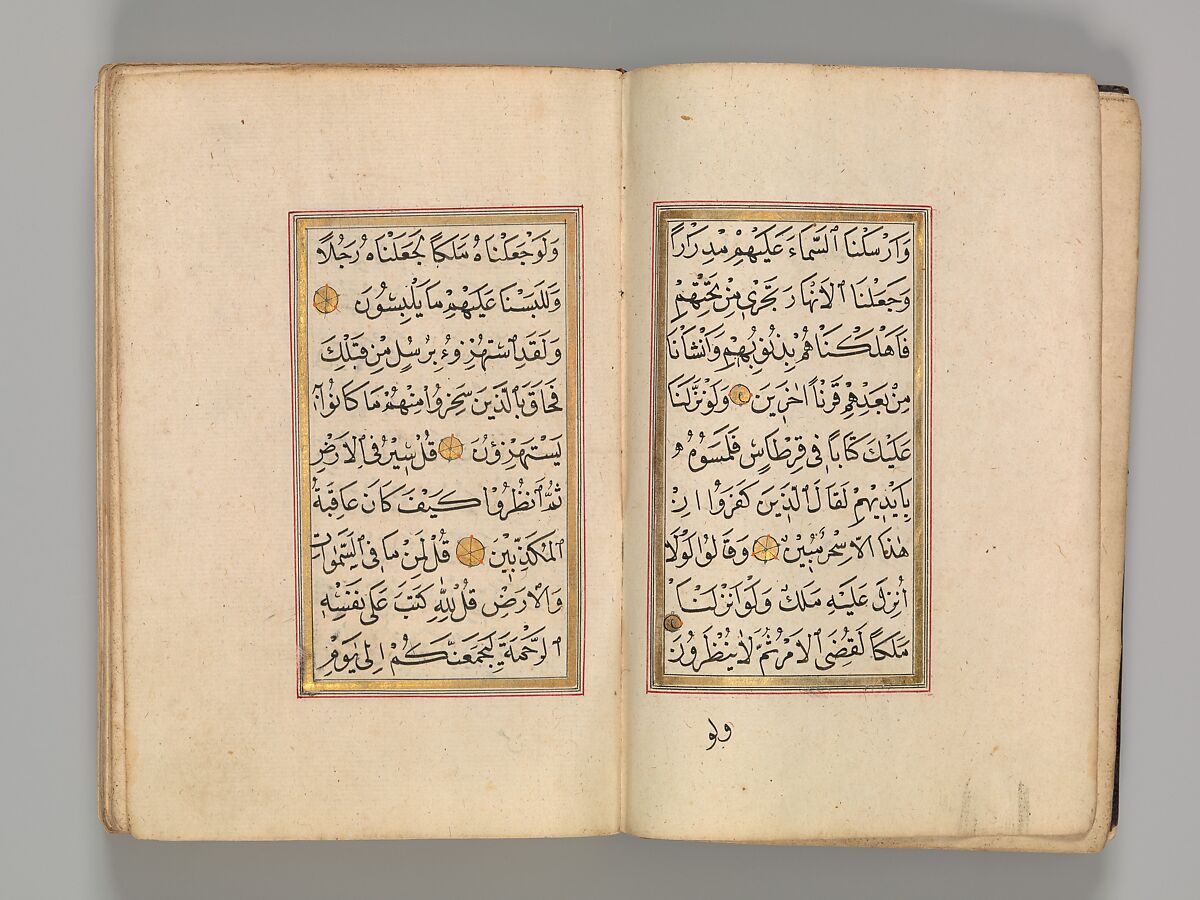 وَاَرْسَلْنَا السَّمَاءَ عَلَيْهِمْ مِدْرَارًا
وَجَعَلْنَا الْاَنْهَارَ تَجْرِى مِنْ تَحْتِهِمْ
فَاَهْلَكْنَاهُمْ بِذُنُوبِهِمْ وَاَنْشَاْنَا
مِنْ بَعْدِهِمْ قَرْنًا اٰخَرِينَ وَلَوْ نَزَّلْنَا
عَلَيْكَ كِتَابًا فِى قِرْطَاسٍ فَلَمَسُوهُ
بِاَيْدِيهِمْ لَقَالَ الَّذِينَ كَفَرُوا اِنْ
هٰذَا اِلَّا سِحْرٌ مُبِينٌ وَقَالُوا لَوْلَا
اُنْزِلَ عَلَيْهِ مَلَكٌ وَلَوْ اَنْزَلْنَا
مَلَكًا لَقُضِىَ الْاَمْرُ ثُمَّ لَا يُنْظَرُونَ
ولو
وَلَوْ جَعَلْنَاهُ مَلَكًا لَجَعَلْنَاهُ رَجُلًا
وَلَلَبَسْنَا عَلَيْهِمْ مَا يَلْبِسُونَ
وَلَقَدِ اسْتُهْزِىءَ بِرُسُلٍ مِنْ قَبْلِكَ
فَحَاقَ بِالَّذِينَ سَخِرُوا مِنْهُمْ مَا كَانُوا بِهِ
يَسْتَهْزِؤُنَ قُلْ سِيرُوا فِى الْاَرْضِ
ثُمَّ انْظُرُوا كَيْفَ كَانَ عَاقِبَةُ
الْمُكَذِّبِينَ قُلْ لِمَنْ مَا فِى السَّمٰوَاتِ
وَالْاَرْضِ قُلْ لِلّٰهِ كَتَبَ عَلٰى نَفْسِهِ
الرَّحْمَةَ لَيَجْمَعَنَّكُمْ اِلٰى يَوْمِ